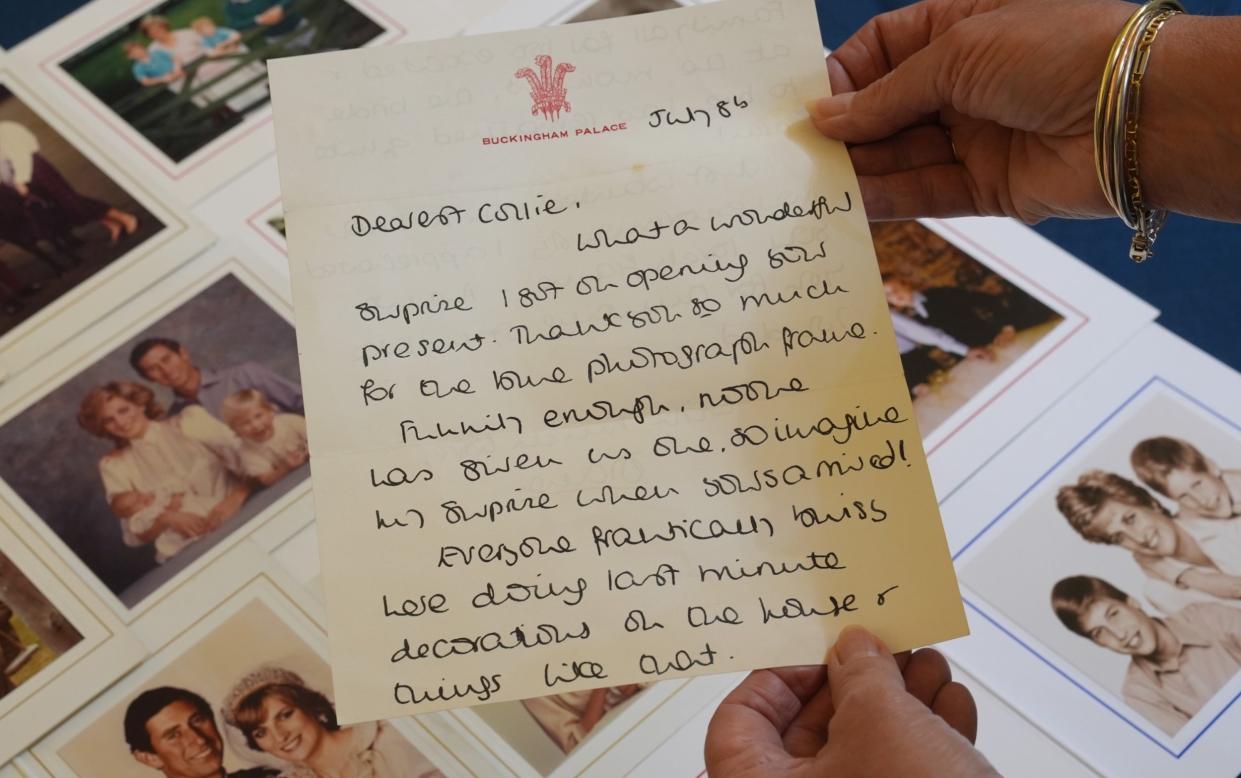 BUCKINGHAM PALACE
July 8th
Dearest Collie,
What a wonderful
surprise I got on opening your
present. Thank you so much
for the photograph frame.
Funnily enough, no one
has given us one, so imagine
my surprise when yours arrived!
Everyone frantically busy
here doing last minute
decorations on the house &
things like that.